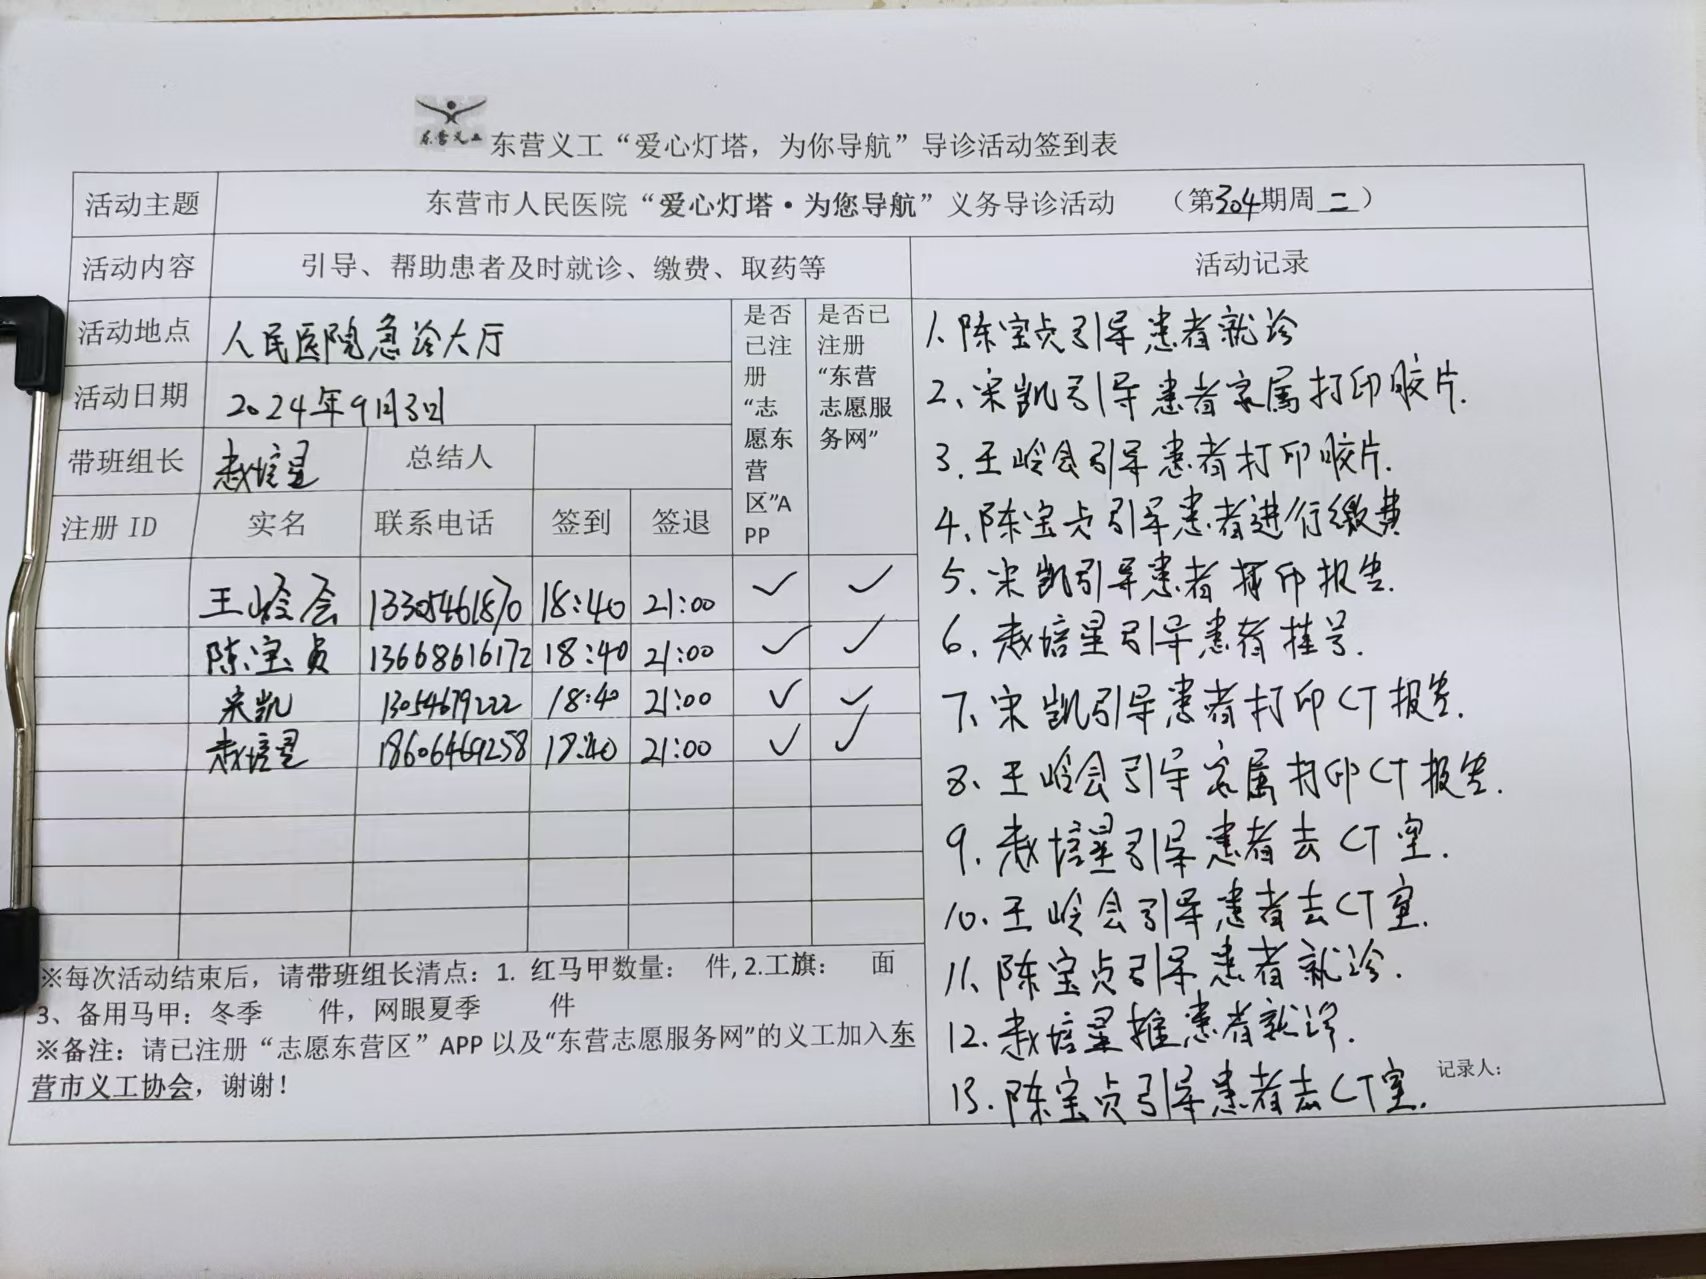 东营义工
东营义工“爱心灯塔，为你导航”导诊活动签到表
活动主题 东营市人民医院“爱心灯塔·为您导航”义务导诊活动 （第304期周二）
活动内容 引导、帮助患者及时就诊、缴费、取药等 活动记录
活动地点 人民医院急诊大厅
活动日期 2024年9月3日
带班组长 赵培星 总结人
注册 ID 实名 联系电话 签到 签退
是否
已注
册
“志
愿东
营
区”A
PP
是否已
注册
“东营
志愿服
务网”
王岭会 13305461870 18:40 21:00 ✓ ✓
陈宝贞 13668616172 18:40 21:00 ✓ ✓
宋凯 13054679222 18:40 21:00 ✓ ✓
赵培星 18606469258 18:40 21:00 ✓ ✓
※每次活动结束后，请带班组长清点：1. 红马甲数量： 件, 2.工旗： 面
3、备用马甲：冬季 件，网眼夏季 件
※备注：请已注册“志愿东营区”APP 以及“东营志愿服务网”的义工加入东
营市义工协会，谢谢！
1、陈宝贞引导患者就诊
2、宋凯引导患者家属打印胶片.
3、王岭会引导患者打印胶片.
4、陈宝贞引导患者进行缴费
5、宋凯引导患者打印报告.
6、赵培星引导患者挂号.
7、宋凯引导患者打印CT报告.
8、王岭会引导家属打印CT报告.
9、赵培星引导患者去CT室.
10、王岭会引导患者去CT室.
11、陈宝贞引导患者就诊.
12、赵培星推患者就诊.
13、陈宝贞引导患者去CT室.
记录人：